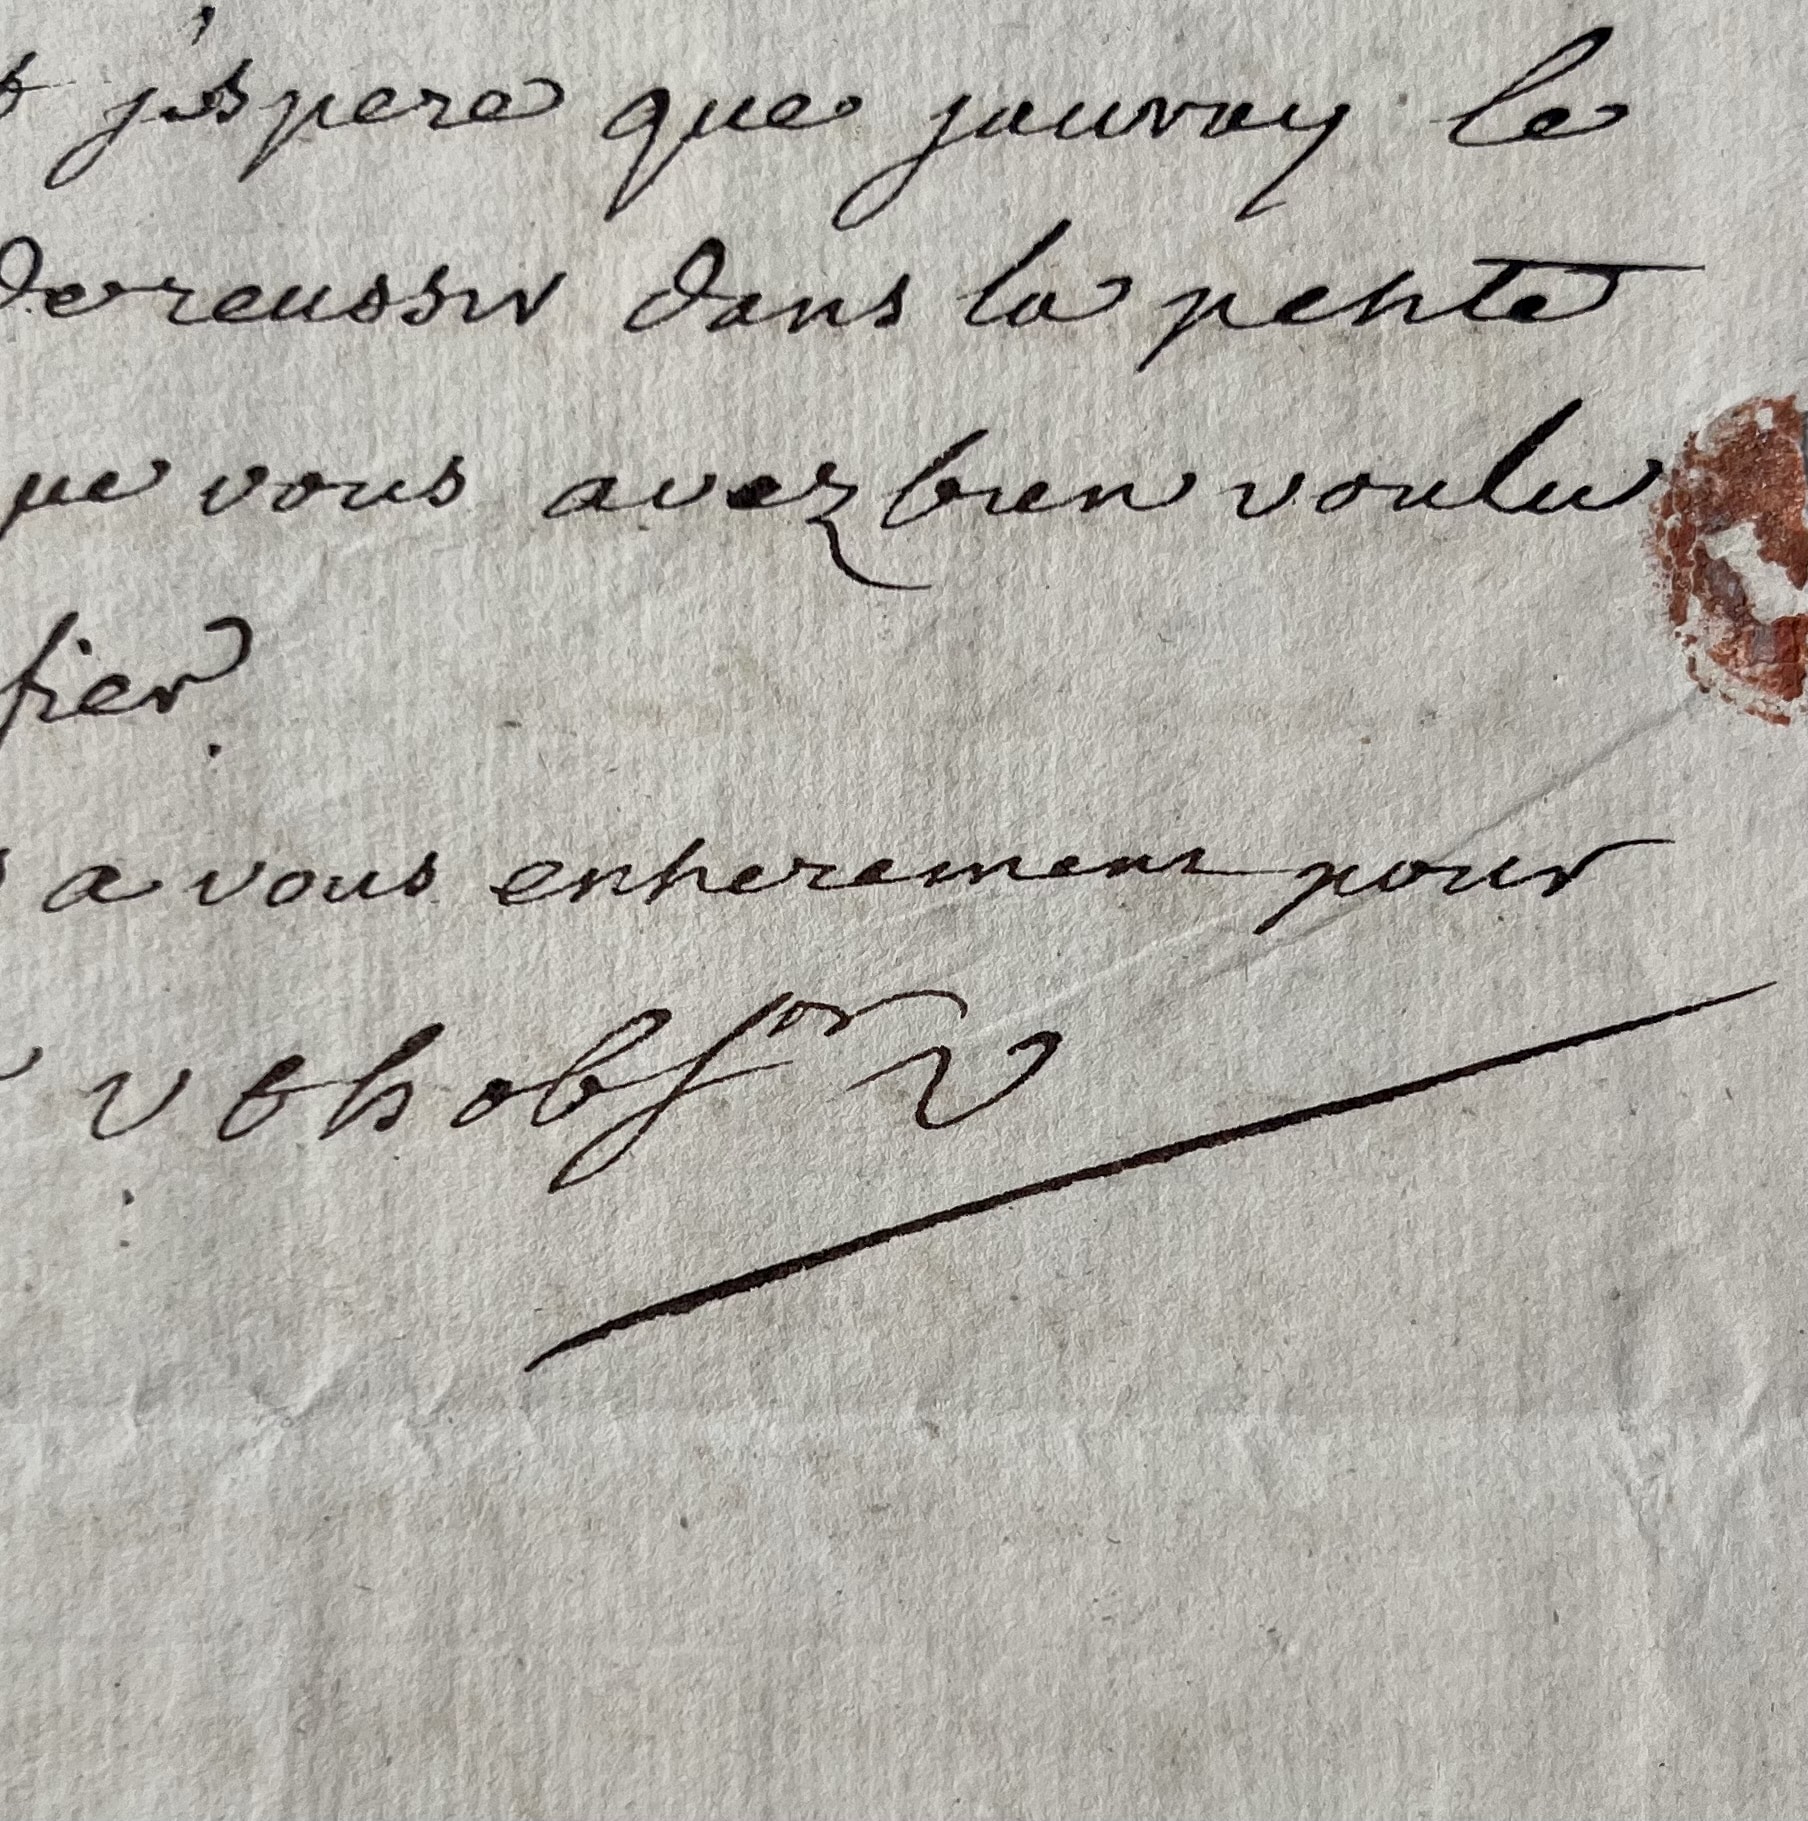 j'espere que jauray le
de reussir dans la petite
que vous avez bien voulu
fier.
a vous entierement pour
v t h ob sor V